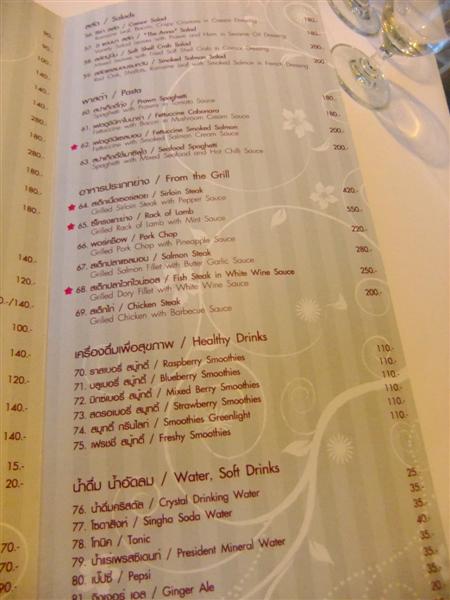 สลัด / Salads
56. ซีซ่า สลัด / Caesar Salad 180.-
Romaine Leaf, Bacon, Crispy Croutons in Caesar Dressing
57. "The Anna" Salad 180.-
Variety Salad leaves with Prawn and Ham in Sesame Oil Dressing
58. สลัดปูนิ่ม / Soft Shell Crab Salad 200.-
Mixed leaves with Fried Soft Shell Crab in Cream Dressing
59. สลัดแซลมอนรมควัน / Smoked Salmon Salad 200.-
Red Oak, Shallots, Romaine Leaf with Smoked Salmon in French Dressing
พาสต้า / Pasta
60. สปาเก็ตตี้กุ้ง / Prawn Spaghetti 180.-
Spaghetti with Prawns in Tomato Sauce
61. เฟตตูชินีคาโบนาร่า / Fettuccine Cabonara 180.-
Fettuccine with Bacon in Mushroom Cream Sauce
62. เฟตตูชินีแซลมอน / Fettuccine Smoked Salmon 200.-
Fettuccine with Smoked Salmon Cream Sauce
63. สปาเก็ตตี้ขี้เมาซีฟู้ด / Seafood Spaghetti 200.-
Spaghetti with Mixed Seafood and Hot Chilli Sauce
อาหารประเภทย่าง / From the Grill
64. สเต็กเนื้อเซอลอย / Sirloin Steak 420.-
Grilled Sirloin Steak with Pepper Sauce
65. ซี่โครงแกะย่าง / Rack of Lamb 550.-
Grilled Rack of Lamb with Mint Sauce
66. พอร์คช็อพ / Pork Chop 220.-
Grilled Pork Chop with Pineapple Sauce
67. สเต็กปลาแซลมอน / Salmon Steak 280.-
Grilled Salmon Fillet with Butter Garlic Sauce
68. สเต็กปลาไวท์ไวน์ซอส / Fish Steak in White Wine Sauce 250.-
Grilled Dory Fillet with White Wine Sauce
69. สเต็กไก่ / Chicken Steak 200.-
Grilled Chicken with Barbecue Sauce
เครื่องดื่มเพื่อสุขภาพ / Healthy Drinks
70. ราสเบอรี่ สมู้ทตี้ / Raspberry Smoothies 110.-
71. บลูเบอรี่ สมู้ทตี้ / Blueberry Smoothies 110.-
72. มิกซ์เบอรี่ สมู้ทตี้ / Mixed Berry Smoothies 110.-
73. สตรอเบอรี่ สมู้ทตี้ / Strawberry Smoothies 110.-
74. สมู้ทตี้ กรีนไลท์ / Smoothies Greenlight 110.-
75. เฟรชชี่ สมู้ทตี้ / Freshy Smoothies
น้ำดื่ม น้ำอัดลม / Water, Soft Drinks
76. น้ำดื่มคริสตัล / Crystal Drinking Water 25.-
77. โซดาสิงห์ / Singha Soda Water 35.-
78. โทนิค / Tonic 35.-
79. น้ำแร่เพรสซิเดนท์ / President Mineral Water 40.-
80. เป๊ปซี่ / Pepsi 35.-
81. จิงเจอร์ เอล / Ginger Ale 35.-
180.-
280.-
280.-
180.-
180.-
180.-
140.-
120.-
0.-/140.-
100.-
120.-
140.-
140.-
15.-
20.-
70.-
70.-
90.-